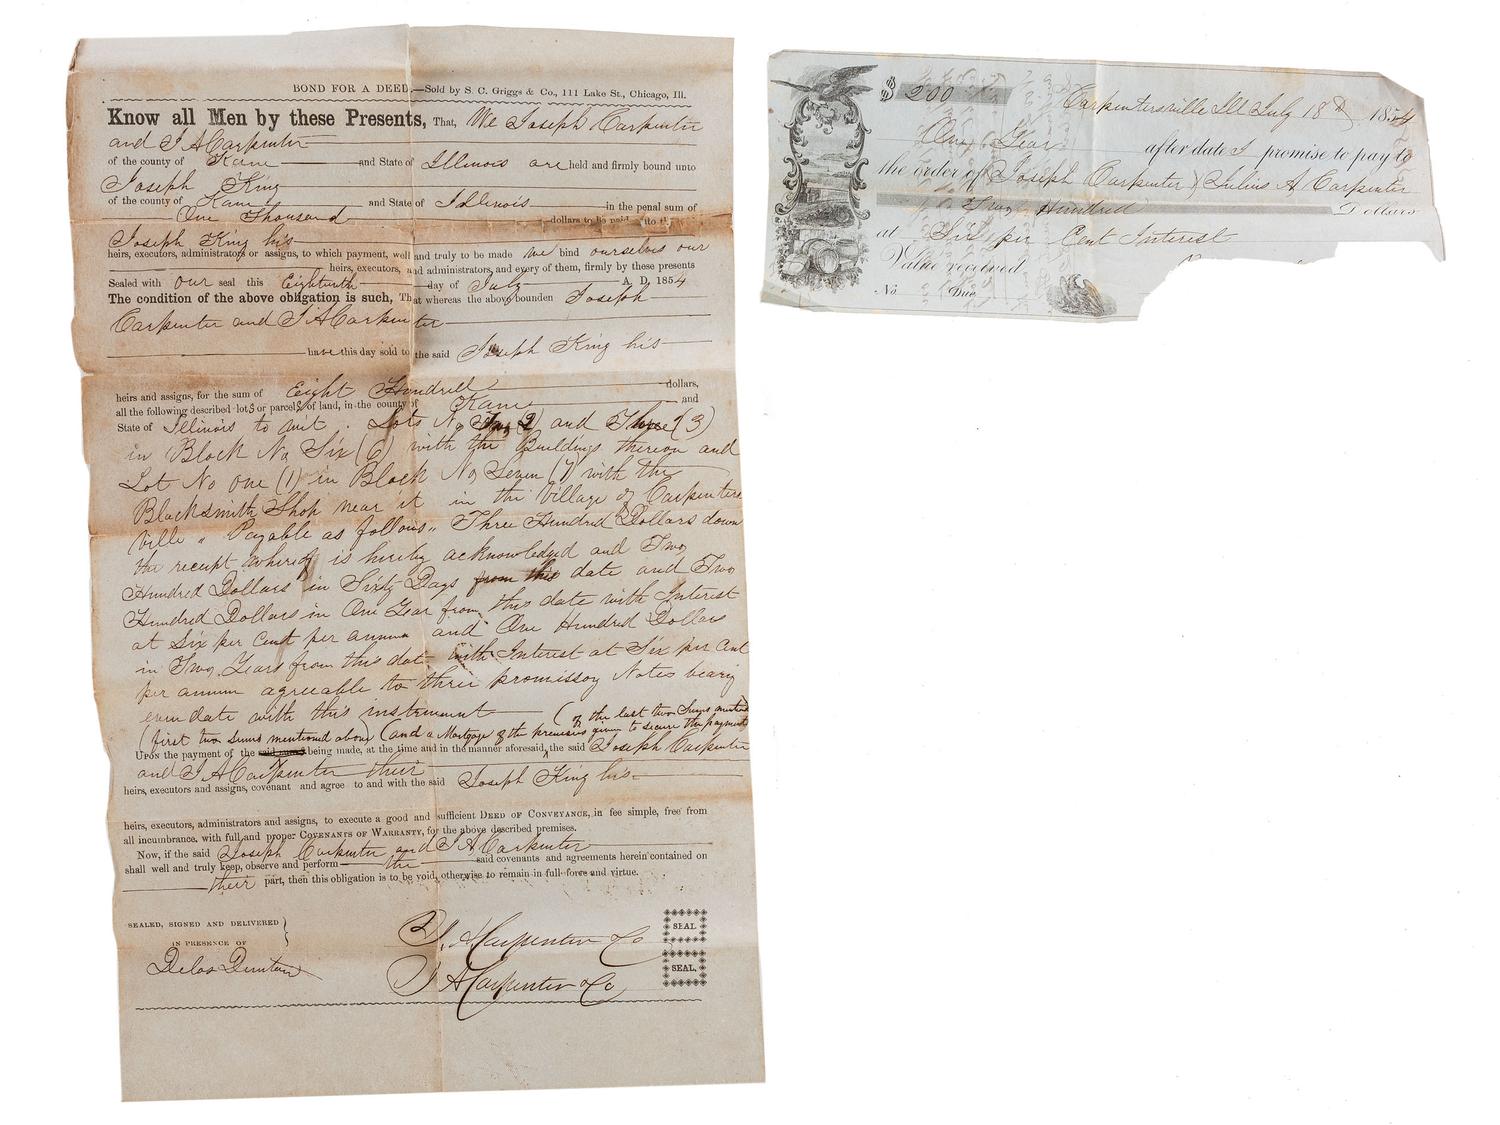 BOND FOR A DEED,—Sold by S. C. Griggs & Co., 111 Lake St., Chicago, Ill.
Know all Men by these Presents, That, We Joseph Carpenter
and J A Carpenter
of the county of Kane and State of Illinois are held and firmly bound unto
Joseph King
of the county of Kane and State of Illinois in the penal sum of
One Thousand dollars to be paid to
Joseph King his
heirs, executors, administrators or assigns, to which payment, well and truly to be made we bind ourselves our
heirs, executors, and administrators, and every of them, firmly by these presents
Sealed with our seal this Eighteenth day of July A. D. 1854
The condition of the above obligation is such, That whereas the above bounden Joseph
Carpenter and J A Carpenter
have this day sold to the said Joseph King his
heirs and assigns, for the sum of Eight Hundred dollars,
all the following described lots or parcels of land, in the county of Kane and
State of Illinois to wit. Lots No Two (2) and Three (3)
in Block No Six (6) with the Buildings thereon and
Lot No One (1) in Block No Seven (7) with the
Blacksmith Shop near it in the Village of Carpenters
ville " Payable as follows " Three Hundred Dollars down
the receipt whereof is hereby acknowledged and Two
Hundred Dollars in Sixty Days from this date and Two
Hundred Dollars in One Year from this date with Interest
at Six per Cent per annum and One Hundred Dollars
in Two Years from this date with Interest at Six per Cent
per annum agreeable to three promissory Notes bearing
even date with this instrument
(of the last two Sums
(first two Sums mentioned above (and a Mortgage of the premises given to secure the payment
UPON the payment of the said sums being made, at the time and in the manner aforesaid, the said Joseph Carpenter
and J A Carpenter their
heirs, executors and assigns, covenant and agree to and with the said Joseph King his
heirs, executors, administrators and assigns, to execute a good and sufficient DEED OF CONVEYANCE, in fee simple, free from
all incumbrance, with full and proper COVENANTS OF WARRANTY, for the above described premises.
Now, if the said Joseph Carpenter and J A Carpenter
shall well and truly keep, observe and perform the said covenants and agreements herein contained on
their part, then this obligation is to be void, otherwise to remain in full force and virtue.
SEALED, SIGNED AND DELIVERED
IN PRESENCE OF
Delos Dunton
J. A Carpenter & Co SEAL
J A Carpenter & Co SEAL.
$ 200 Carpentersville Ill July 18th 1854
One Year after date I promise to pay to
the order of Joseph Carpenter & Julius A. Carpenter
Two Hundred Dollars
at Six per Cent Interest
Value received
No Due